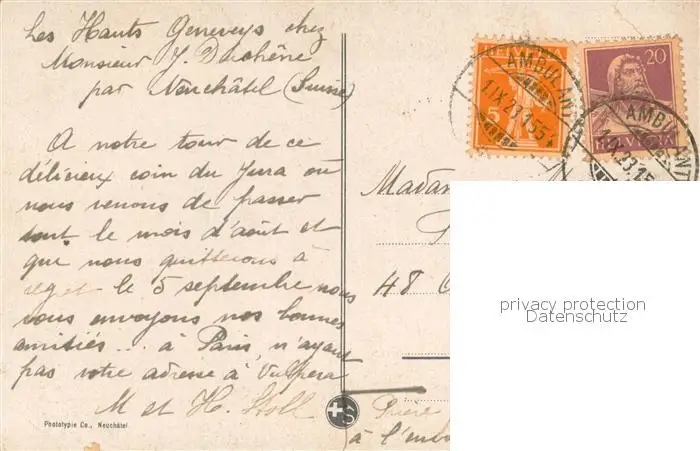 Les Hauts Geneveys chez
Monsieur J. Duchêne
par Neuchâtel (Suisse)
A notre tour de ce
délicieux coin du Jura où
nous venons de passer
tout le mois d'août et
que nous quitterons à
regret le 5 septembre nous
vous envoyons nos bonnes
amitiés... à Paris, n'ayant
pas votre adresse à Vulpera
M et H. Stoll
Phototypie Co., Neuchâtel
HELVETIA
5
20
HELVETIA
AMBULANT
1.IX.23.155
AMBULANT
1.IX.23.15
Madam
48
Prière
à l'en
privacy protection
Datenschutz